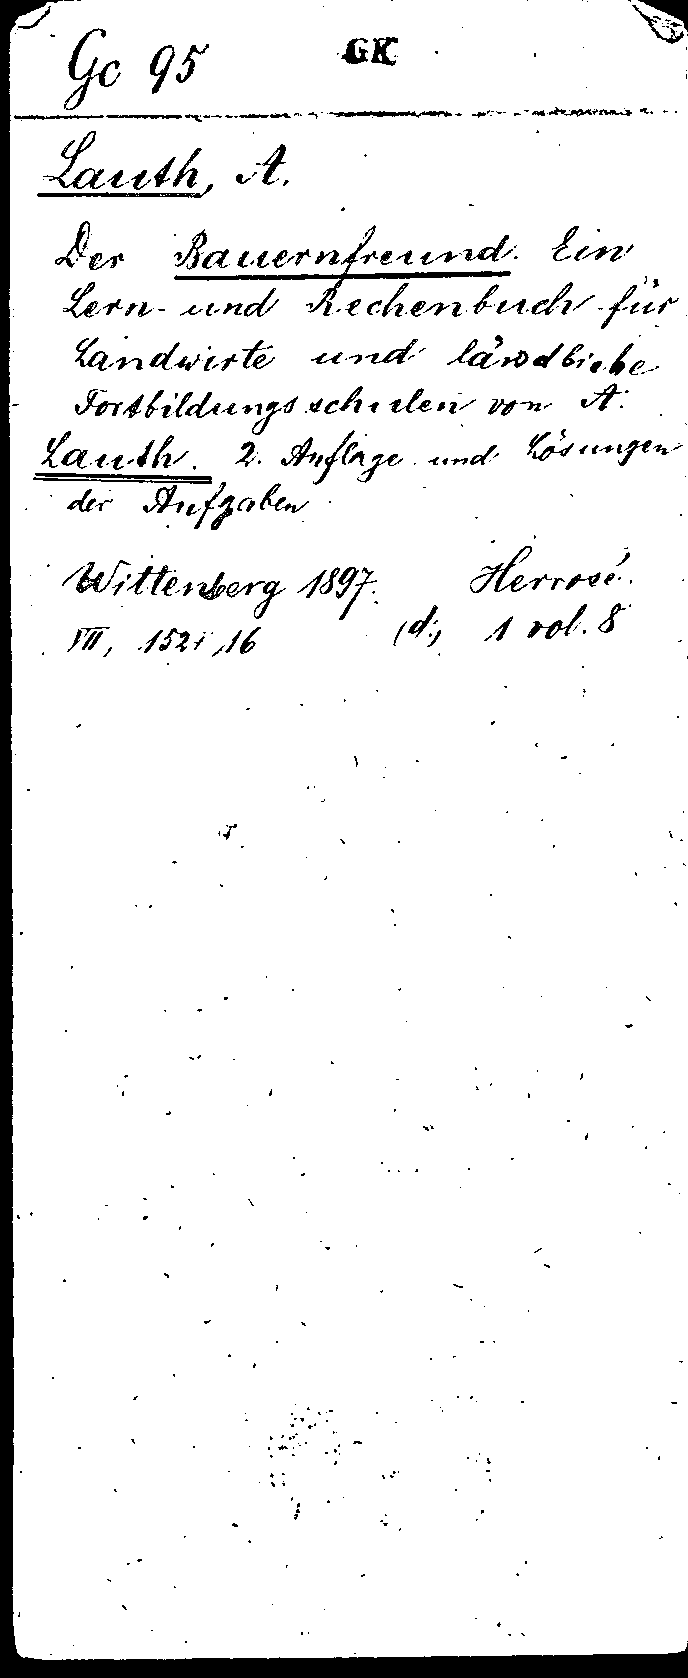 Gc 95 GK
Lauth, A.
Der Bauernfreund. Ein
Lern- und Rechenbuch für
Landwirte und ländliche
Fortbildungsschulen von A.
Lauth. 2. Auflage und Lösungen
der Aufgaben
Wittenberg 1897. Herrosé.
VII, 152, 16 (d.) 1 vol. 8